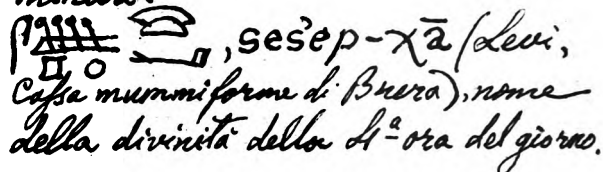 , seśep-χā (Levi,
Caſsa mummiforme di Brera), nome
della divinità della 4ª ora del giorno.